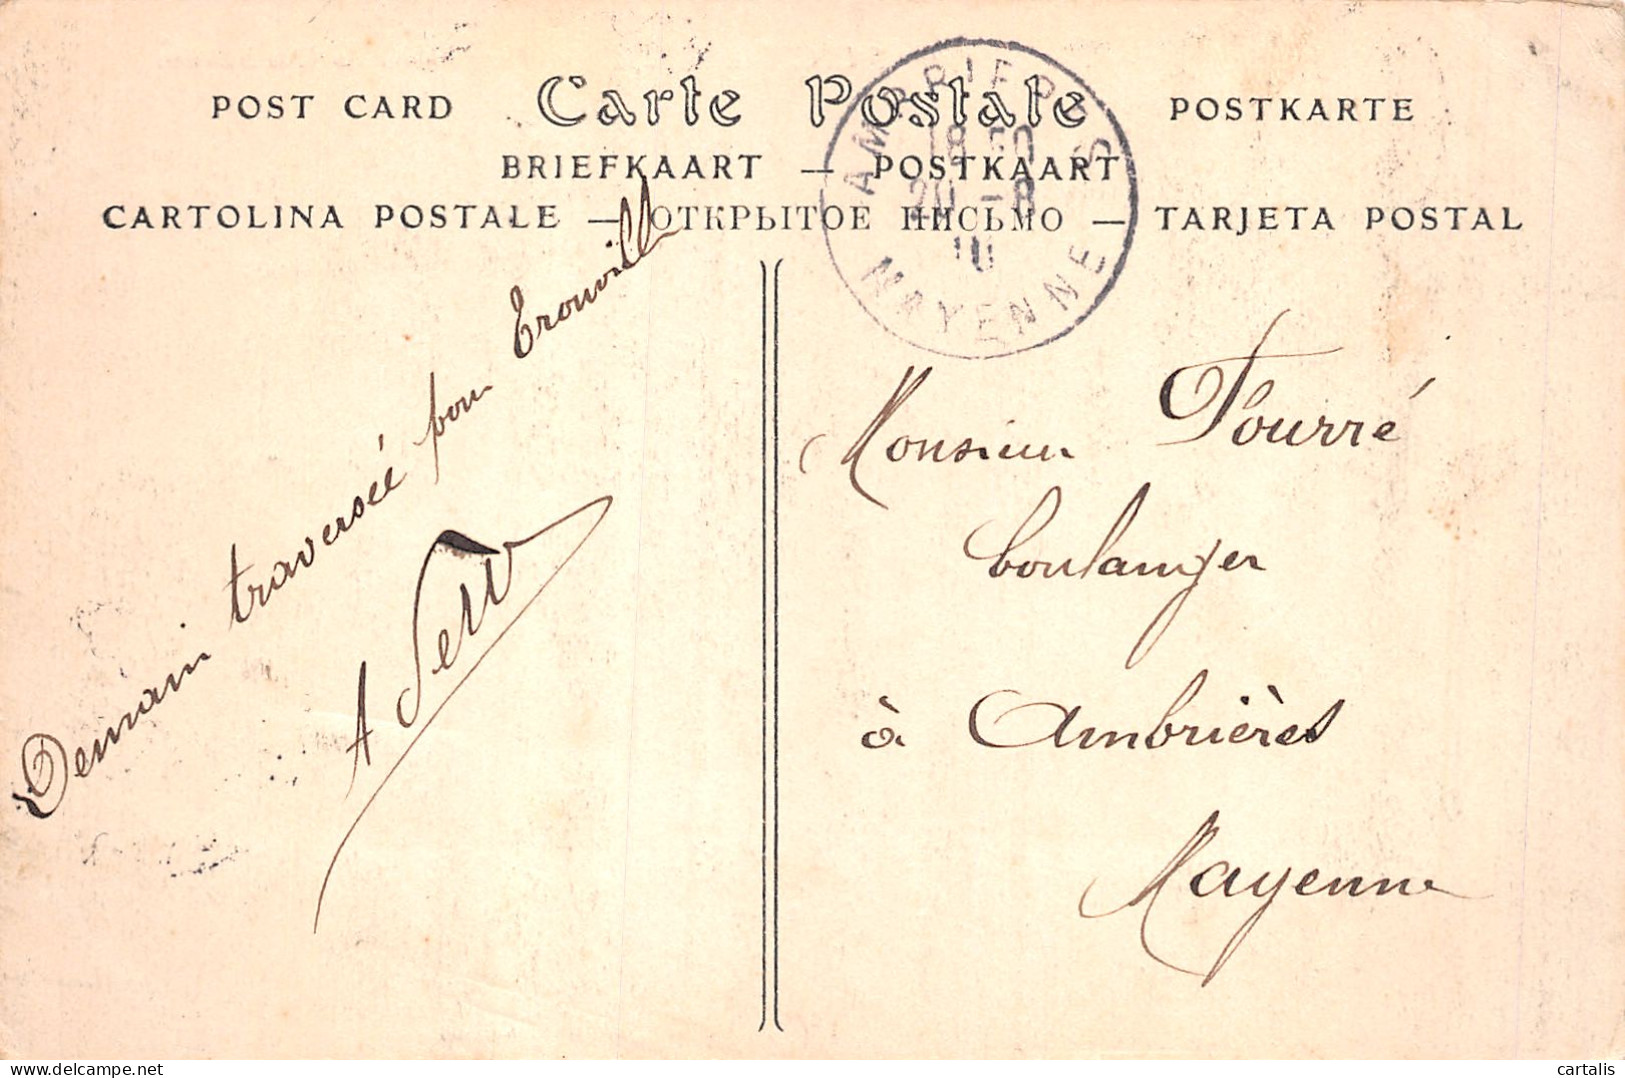 POST CARD Carte Postale POSTKARTE
BRIEFKAART — POSTKAART
CARTOLINA POSTALE — ОТКРЫТОЕ ПИСЬМО — TARJETA POSTAL
AMBRIERES
18 50
20 - 8
10
MAYENNE
Demain traversée pour Trouville
A
Monsieur Fourré
boulanger
à Ambrières
Mayenne
cartalis
delcampe.net